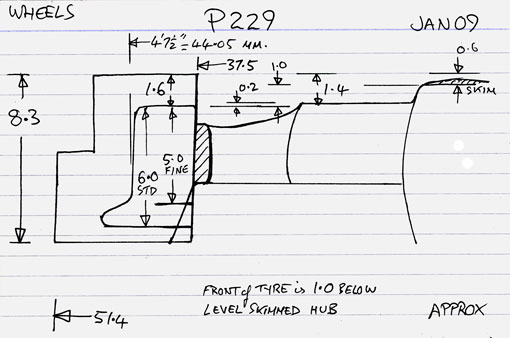 WHEELS
P229
JAN 09
4'7½"=44.05 MM.
37.5
1.0
0.6
1.6
0.2
1.4
SKIM
8.3
5.0
FINE
6.0
STD
FRONT of TYRE is 1.0 BELOW
LEVEL SKIMMED HUB
APPROX
51.4